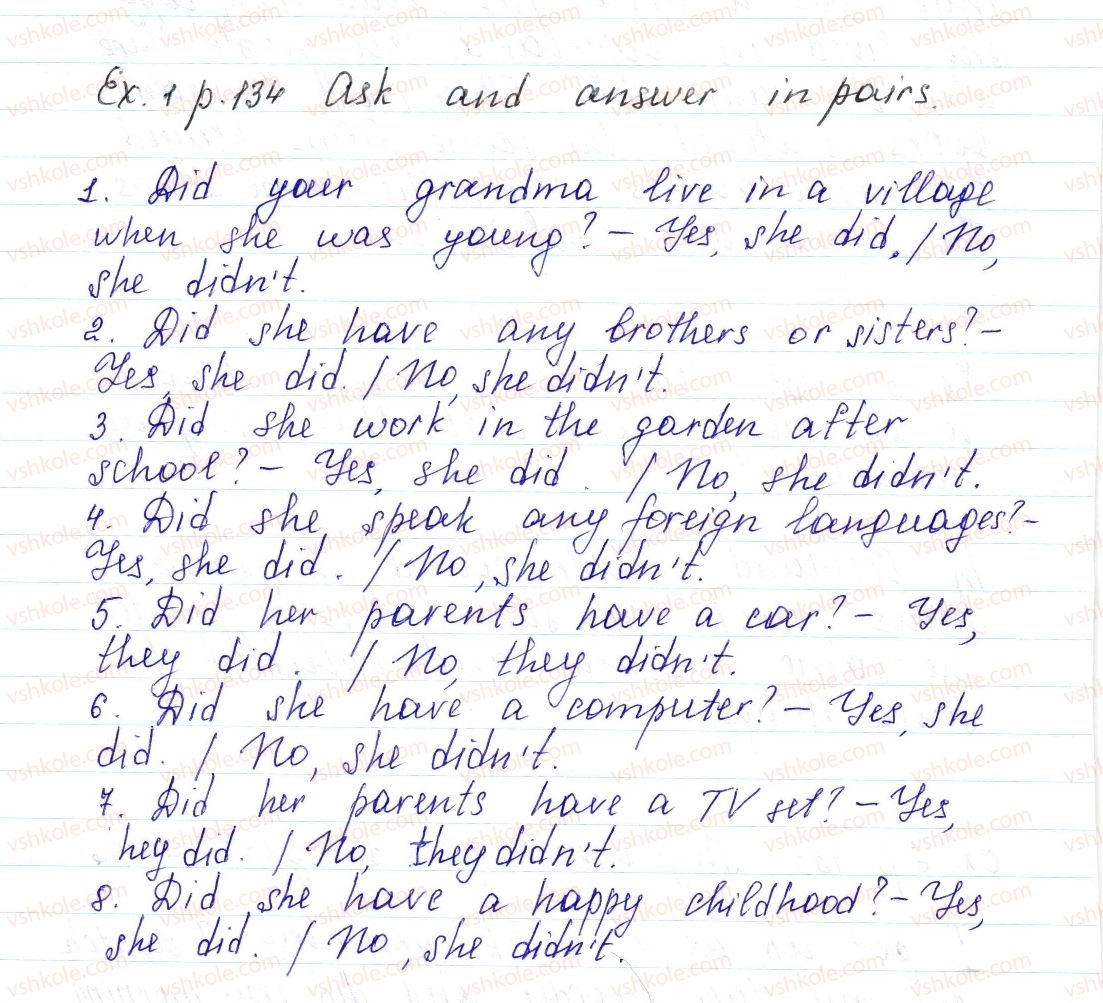 Ex. 1 p. 134 Ask and answer in pairs.
1. Did your grandma live in a village
when she was young? – Yes, she did. / No,
she didn't.
2. Did she have any brothers or sisters? –
Yes, she did. / No, she didn't.
3. Did she work in the garden after
school? – Yes, she did. / No, she didn't.
4. Did she speak any foreign languages? –
Yes, she did. / No, she didn't.
5. Did her parents have a car? – Yes,
they did. / No, they didn't.
6. Did she have a computer? – Yes, she
did. / No, she didn't.
7. Did her parents have a TV set? – Yes,
hey did. / No, they didn't.
8. Did she have a happy childhood? – Yes,
she did. / No, she didn't.
vshkole.com